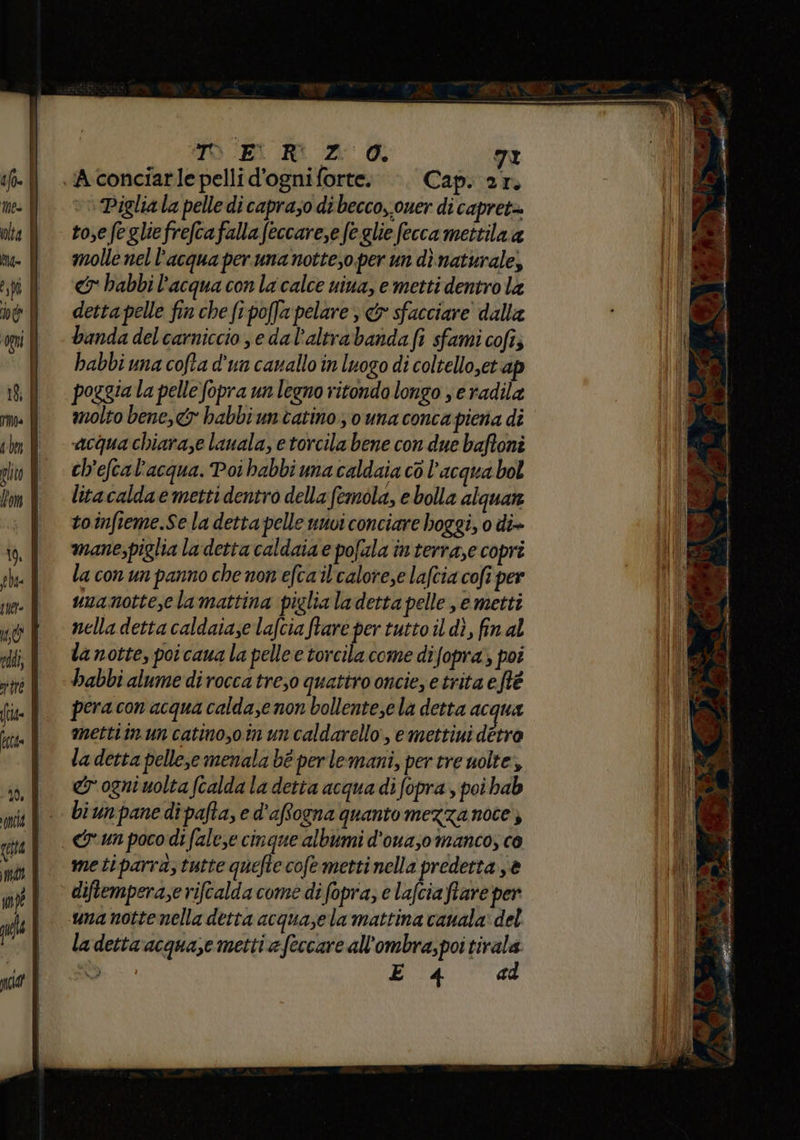 TERZO. 71
A conciar le pelli d'ogni ſorte. Cap. 21.
Piglia la pelle di capra, o di becco, ouer di capret-
to, e ſe gli e freſca falla ſeccare, e ſe gli e ſecca mettila a
molle nel l'acqua per una notte, o per un dì naturale,
& habbi l'acqua con la calce uiua, e metti dentro la
detta pelle fin che ſi poſſa pelare, & sfacciare dalla
banda del carniccio, e da l'altra banda ſi sfami coſi,
habbi una coſta d'un cauallo in luogo di coltello, et ap
poggia la pelle ſopra un legno ritondo longo, e radila
molto bene, & habbi un catino, o una conca piena di
acqua chiara, e lauala, e torcila bene con due baſtoni
ch'eſca l'acqua. Poi habbi una caldaia cō l'acqua bol
lita calda e metti dentro della ſemola, e bolla alquan
to inſieme. Se la detta pelle uuoi conciare hoggi, o di-
mane, piglia la detta caldaia e poſala in terra, e copri
la con un panno che non eſca il calore, e laſcia coſi per
una notte, e la mattina piglia la detta pelle, e metti
nella detta caldaia, e laſcia ſtare per tutto il dì, fin al
la notte, poi caua la pelle e torcila come di ſopra, poi
habbi alume di rocca tre, o quattro oncie, e trita e ſtē
pera con acqua calda, e non bollente, e la detta acqua
metti in un catino, o in un caldarello, e mettiui dētro
la detta pelle, e menala bē per le mani, per tre uolte,
& ogni uolta ſcalda la detta acqua di ſopra, poi hab
bi un pane di paſta, e d'aſſogna quanto mezza noce,
& un poco di ſale, e cinque albumi d'oua, o manco, co
me ti parrà, tutte queſte coſe metti nella predetta, e
diſtempera, e riſcalda come di ſopra, e laſcia ſtare per
una notte nella detta acqua, e la mattina cauala del
la detta acqua, e metti a ſeccare all'ombra, poi tirala
E 4 ad